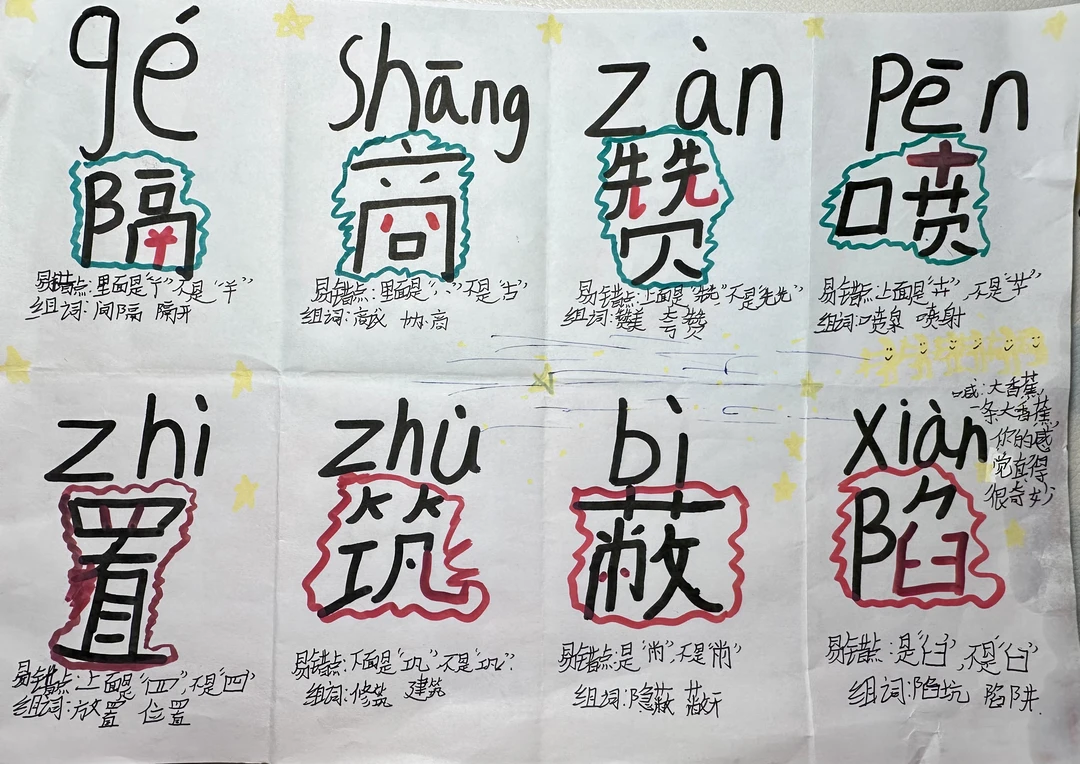 gé
隔
易错点:里面是“丷”不是“羊”
组词:间隔 隔开
shāng
商
易错点:里面是“丷”不是“古”
组词:商议 协商
zàn
赞
易错点:上面是“兟”不是“先先”
组词:赞美 夸赞
pēn
喷
易错点:上面是“十廾”,不是“艹”
组词:喷泉 喷射
喊:大香蕉,
一条大香蕉,
你的感
觉真得
很奇妙
zhì
置
易错点:上面是“罒”,不是“四”
组词:放置 位置
zhù
筑
易错点:下面是“巩”不是“巩”.
组词:修筑 建筑
bì
蔽
易错点:是“㡀”,不是“尚”
组词:隐蔽 蔽开
xiàn
陷
易错点:是“臽”,不是“臼”
组词:陷坑 陷阱.